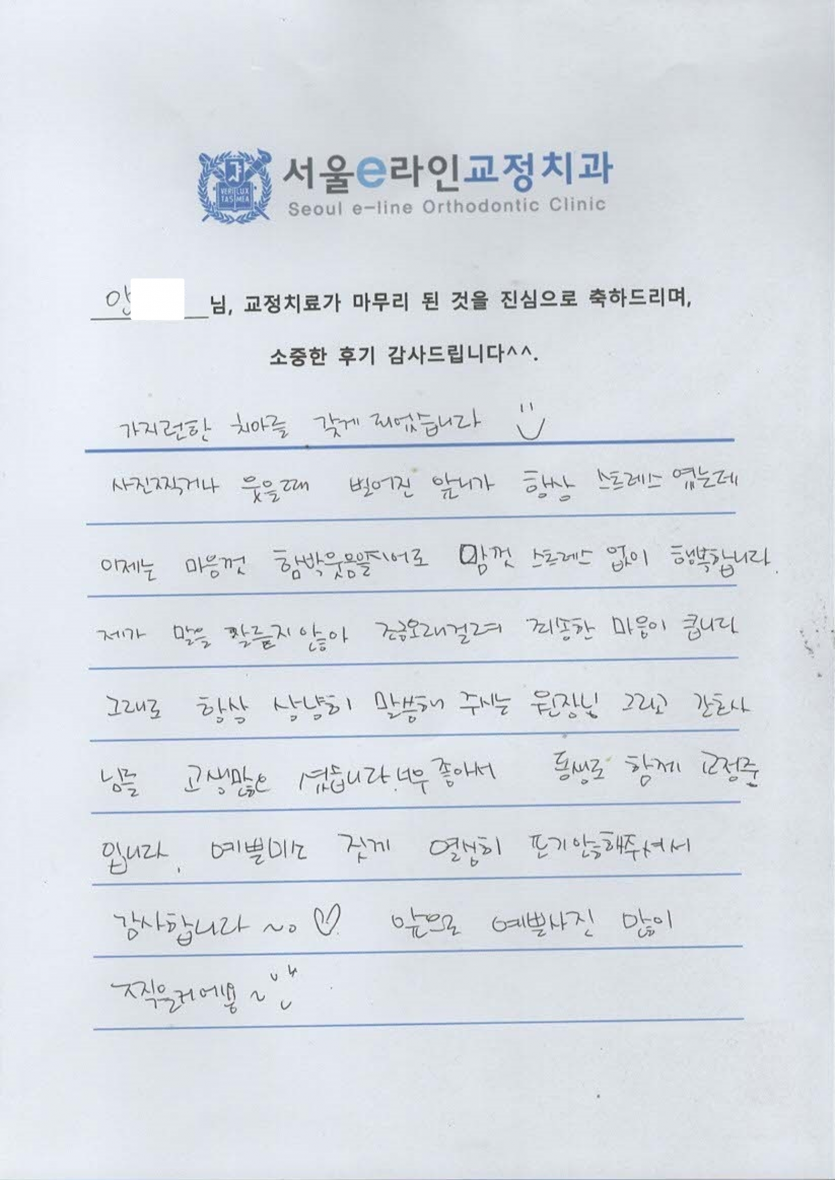 서울e라인교정치과
Seoul e-line Orthodontic Clinic
VERI LUX TAS MEA
안 님, 교정치료가 마무리 된 것을 진심으로 축하드리며,
소중한 후기 감사드립니다^^.
가지런한 치아를 갖게 되었습니다
사진찍거나 웃을때 벌어진 앞니가 항상 스트레스 였는데
이제는 마음껏 함박웃음을지어도 맘껏 스트레스 없이 행복합니다.
제가 말을 잘듣지않아 조금오래걸려 죄송한 마음이 큽니다
그래도 항상 상냥히 말씀해 주시는 원장님 그리고 간호사
님들 고생많으셨습니다. 너무 좋아서 동생도 함께 교정중
입니다. 예쁜미소 짓게 열심히 포기안해주셔서
감사합니다 ~♡ 앞으로 예쁜사진 많이
찍을거에용~